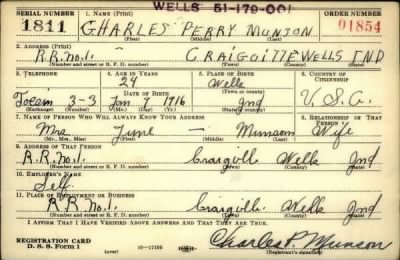 WELLS 51-179-001
SERIAL NUMBER 1. NAME (Print) ORDER NUMBER
1811 CHARLES PERRY MUNSON 01854
(First) (Middle) (Last)
2. ADDRESS (Print)
R.R. No.1. - CRAIGVILLE WELLS IND
(Number and street or R. F. D. number) (Town) (County) (State)
3. TELEPHONE 4. AGE IN YEARS 5. PLACE OF BIRTH 6. COUNTRY OF CITIZENSHIP
24 Wells
DATE OF BIRTH (Town or county)
Tocsin 3-3 Jan 9 1916 Ind U.S.A.
(Exchange) (Number) (Mo.) (Day) (Yr.) (State or country)
7. NAME OF PERSON WHO WILL ALWAYS KNOW YOUR ADDRESS 8. RELATIONSHIP OF THAT PERSON
Mrs June - Munson Wife
(Mr., Mrs., Miss) (First) (Middle) (Last)
9. ADDRESS OF THAT PERSON
R.R. No.1. Craigville Wells Ind
(Number and street or R. F. D. number) (Town) (County) (State)
10. EMPLOYER'S NAME
Self
11. PLACE OF EMPLOYMENT OR BUSINESS
R R No.1. Craigville Wells Ind
(Number and street or R. F. D. number) (Town) (County) (State)
I AFFIRM THAT I HAVE VERIFIED ABOVE ANSWERS AND THAT THEY ARE TRUE.
REGISTRATION CARD
D. S. S. Form 1 16-17105 Charles P. Munson
(Registrant's signature)